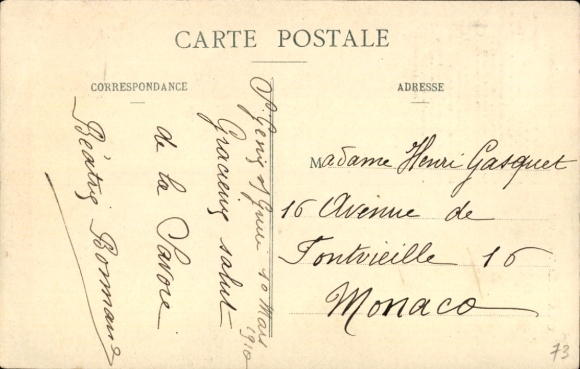 CARTE POSTALE
CORRESPONDANCE
ADRESSE
St Genix s/ Guiers 10 Mars
1910
Gracieux salut
de la Savoie
Béatrix
Madame Henri Gasquet
16 Avenue de
Fontvieille 16
Monaco
73